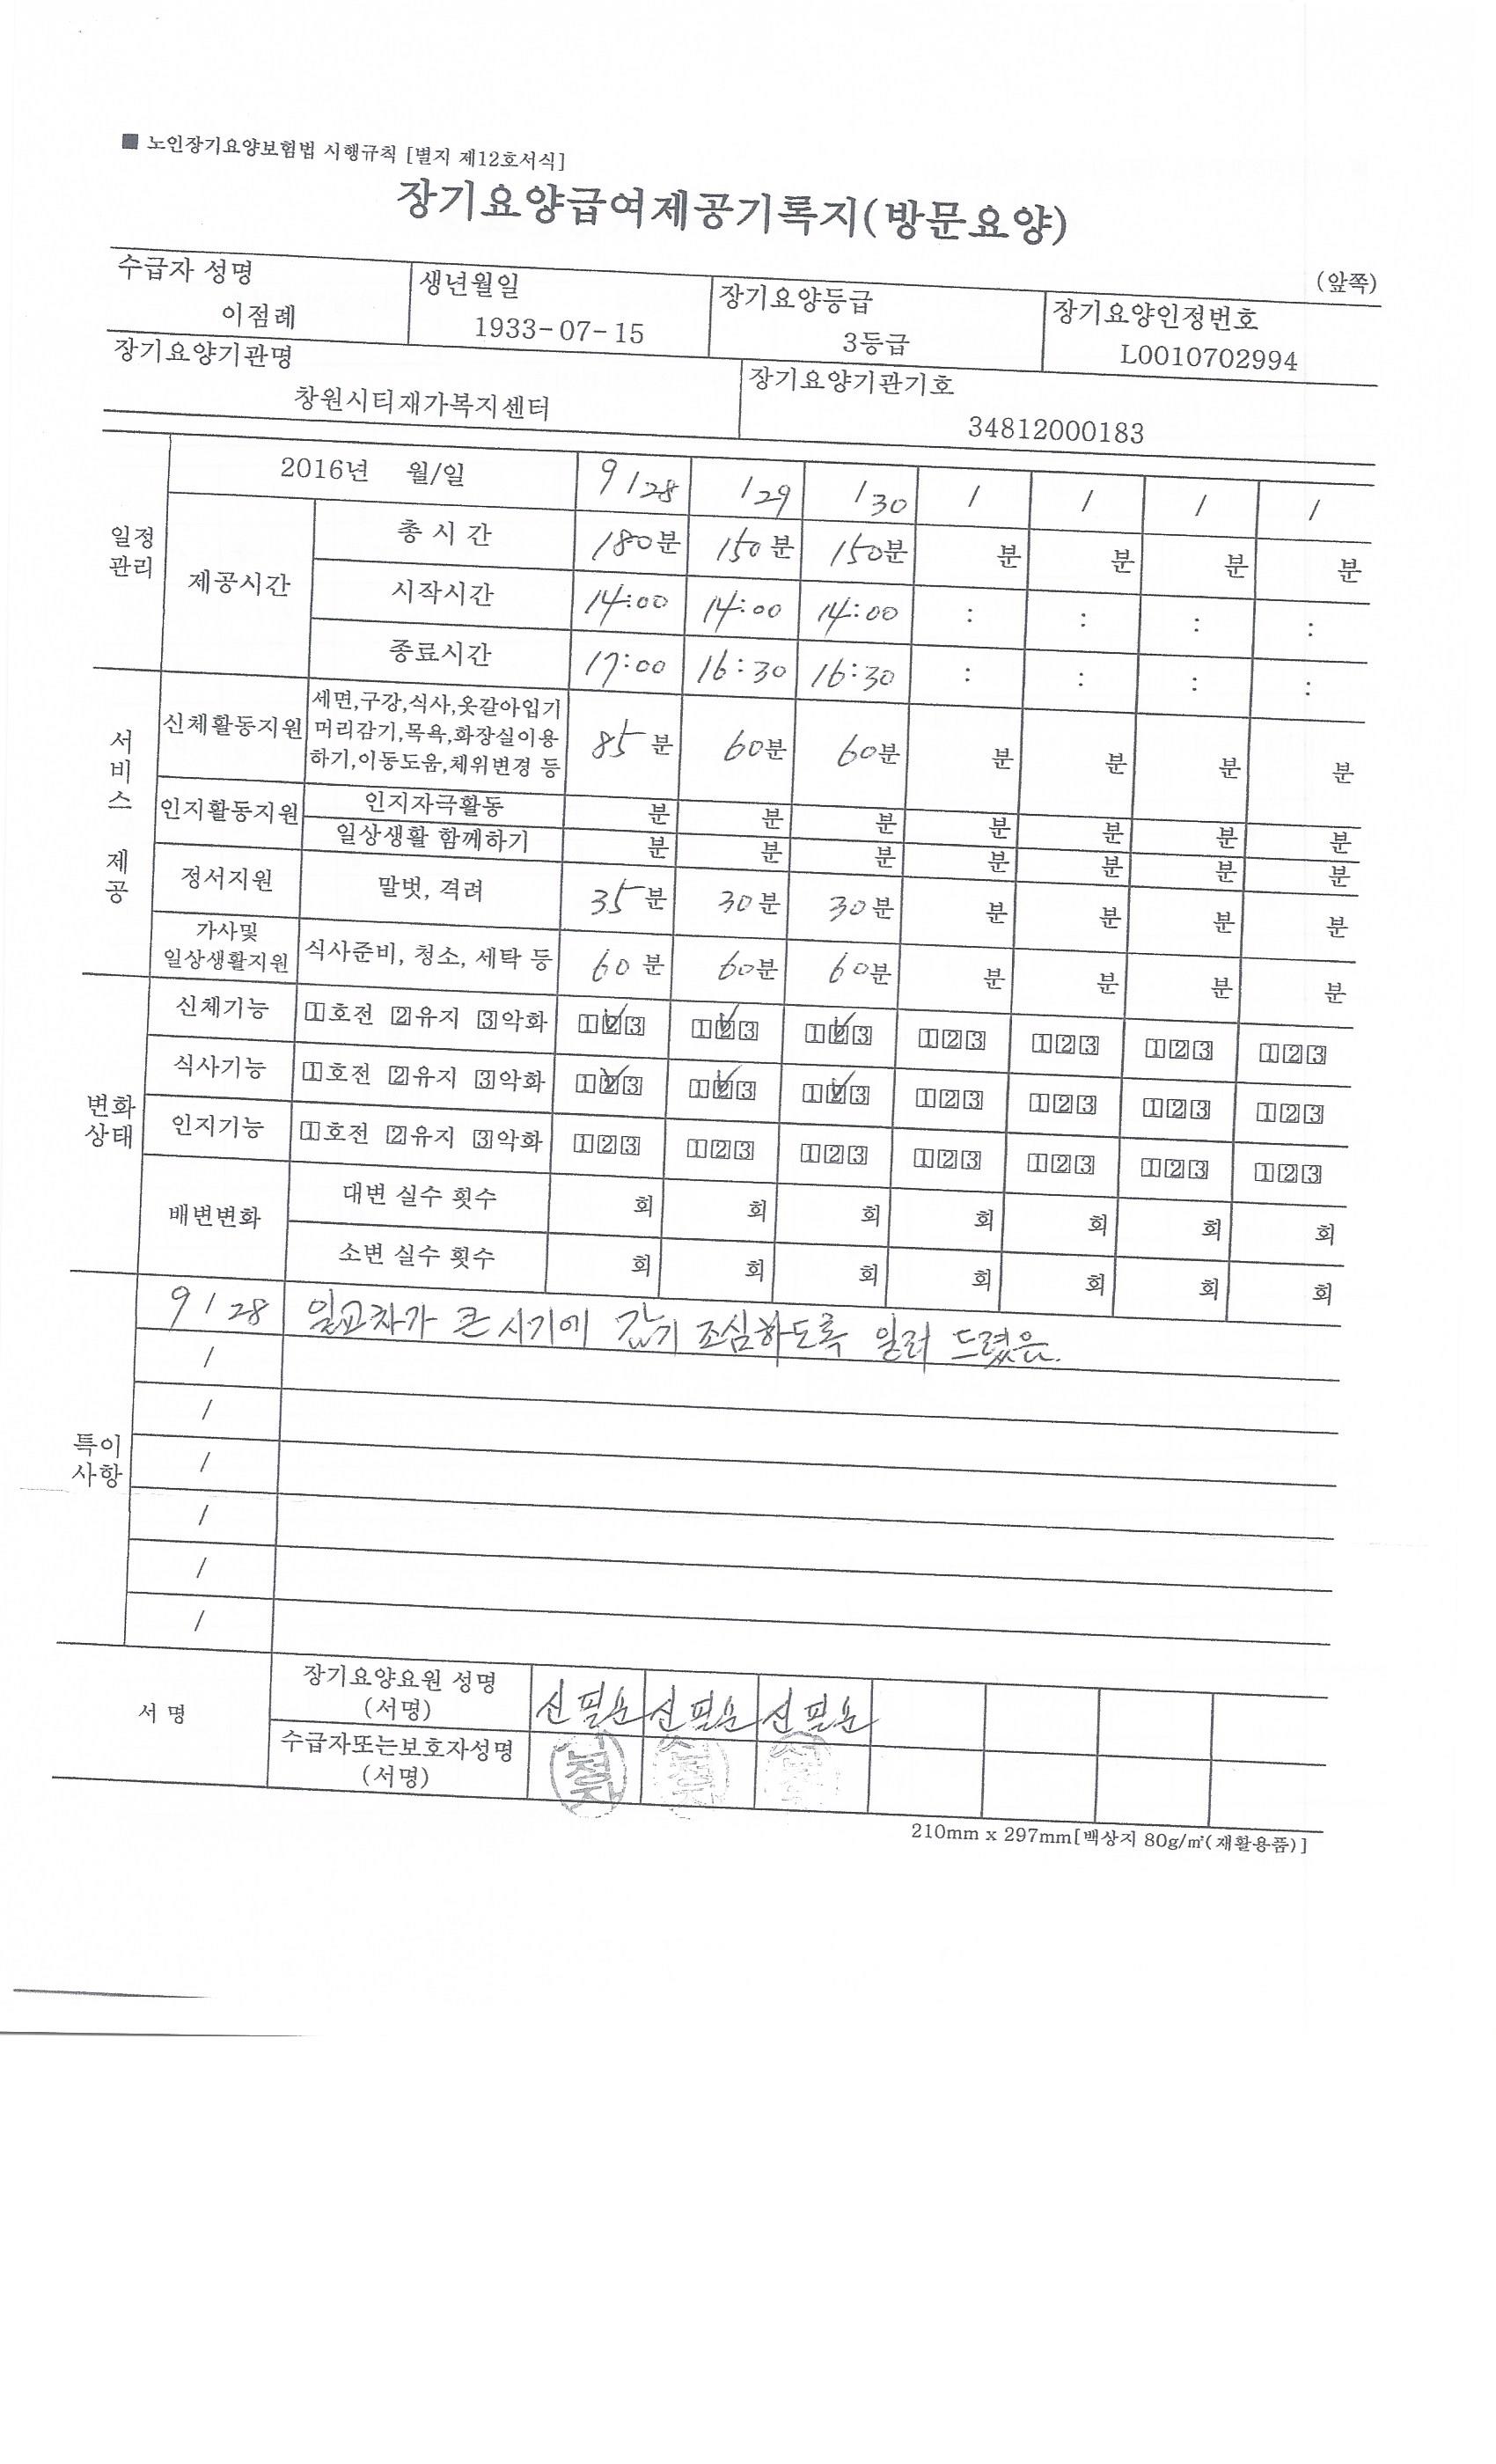 ■ 노인장기요양보험법 시행규칙 [별지 제12호서식]
장기요양급여제공기록지(방문요양)
(앞쪽)
수급자 성명 생년월일 장기요양등급 장기요양인정번호
이점례 1933-07-15 3등급 L0010702994
장기요양기관명 장기요양기관기호
창원시티재가복지센터 34812000183
일정 관리
2016년 월/일 9/28 /29 /30 / / / /
제공시간
총 시 간 180분 150분 150분 분 분 분 분
시작시간 14:00 14:00 14:00 : : : :
종료시간 17:00 16:30 16:30 : : : :
서비스 제공
신체활동지원
세면,구강,식사,옷갈아입기
머리감기,목욕,화장실이용
하기,이동도움,체위변경 등
85분 60분 60분 분 분 분 분
인지활동지원
인지자극활동 분 분 분 분 분 분 분
일상생활 함께하기 분 분 분 분 분 분 분
정서지원 말벗, 격려 35분 30분 30분 분 분 분 분
가사및
일상생활지원 식사준비, 청소, 세탁 등 60분 60분 60분 분 분 분 분
변화
상태
신체기능 1호전 2유지 3악화 1✓2 3 1✓2 3 1✓2 3 1 2 3 1 2 3 1 2 3 1 2 3
식사기능 1호전 2유지 3악화 1✓2 3 1✓2 3 1✓2 3 1 2 3 1 2 3 1 2 3 1 2 3
인지기능 1호전 2유지 3악화 1 2 3 1 2 3 1 2 3 1 2 3 1 2 3 1 2 3 1 2 3
배변변화
대변 실수 횟수 회 회 회 회 회 회 회
소변 실수 횟수 회 회 회 회 회 회 회
특이
사항
9/28 일교차가 큰 시기에 감기 조심하도록 일러 드렸음.
/
/
/
/
/
/
서 명
장기요양요원 성명
(서명)
신필운 신필운 신필운
수급자또는보호자성명
(서명)
210mm x 297mm[백상지 80g/㎡(재활용품)]